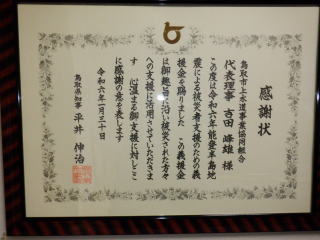 感謝状
鳥取市上水道事業協同組合
代表理事 吉田 峰雄 様
この度は令和六年能登半島地
震による被災者支援のための義
援金を賜りました この義援金
は御趣旨に沿い被災された方々
への支援に活用させていただきま
す 心温まる御支援に対しここ
に感謝の意を表します
令和六年一月三十日
鳥取県知事 平井 伸治